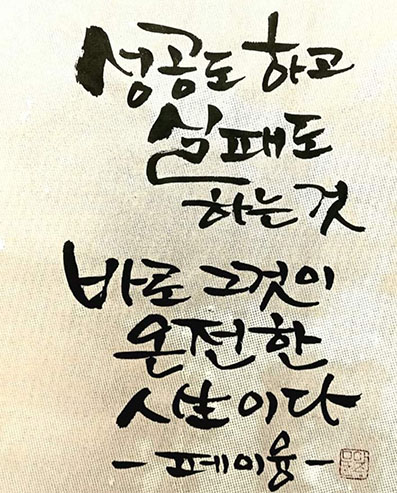 성공도 하고
실패도
하는 것
바로 그것이
온전한
人生이다
- 페이융 -